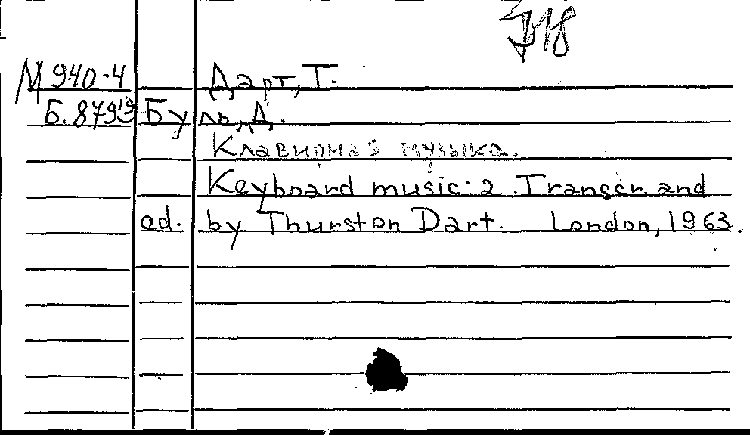 М 940-4 Дарт, Т.
Б.879 Буль, Д.
Клавирная музыка.
Keyboard music: 2. Transcr. and
ed. by Thurston Dart. London, 1963.